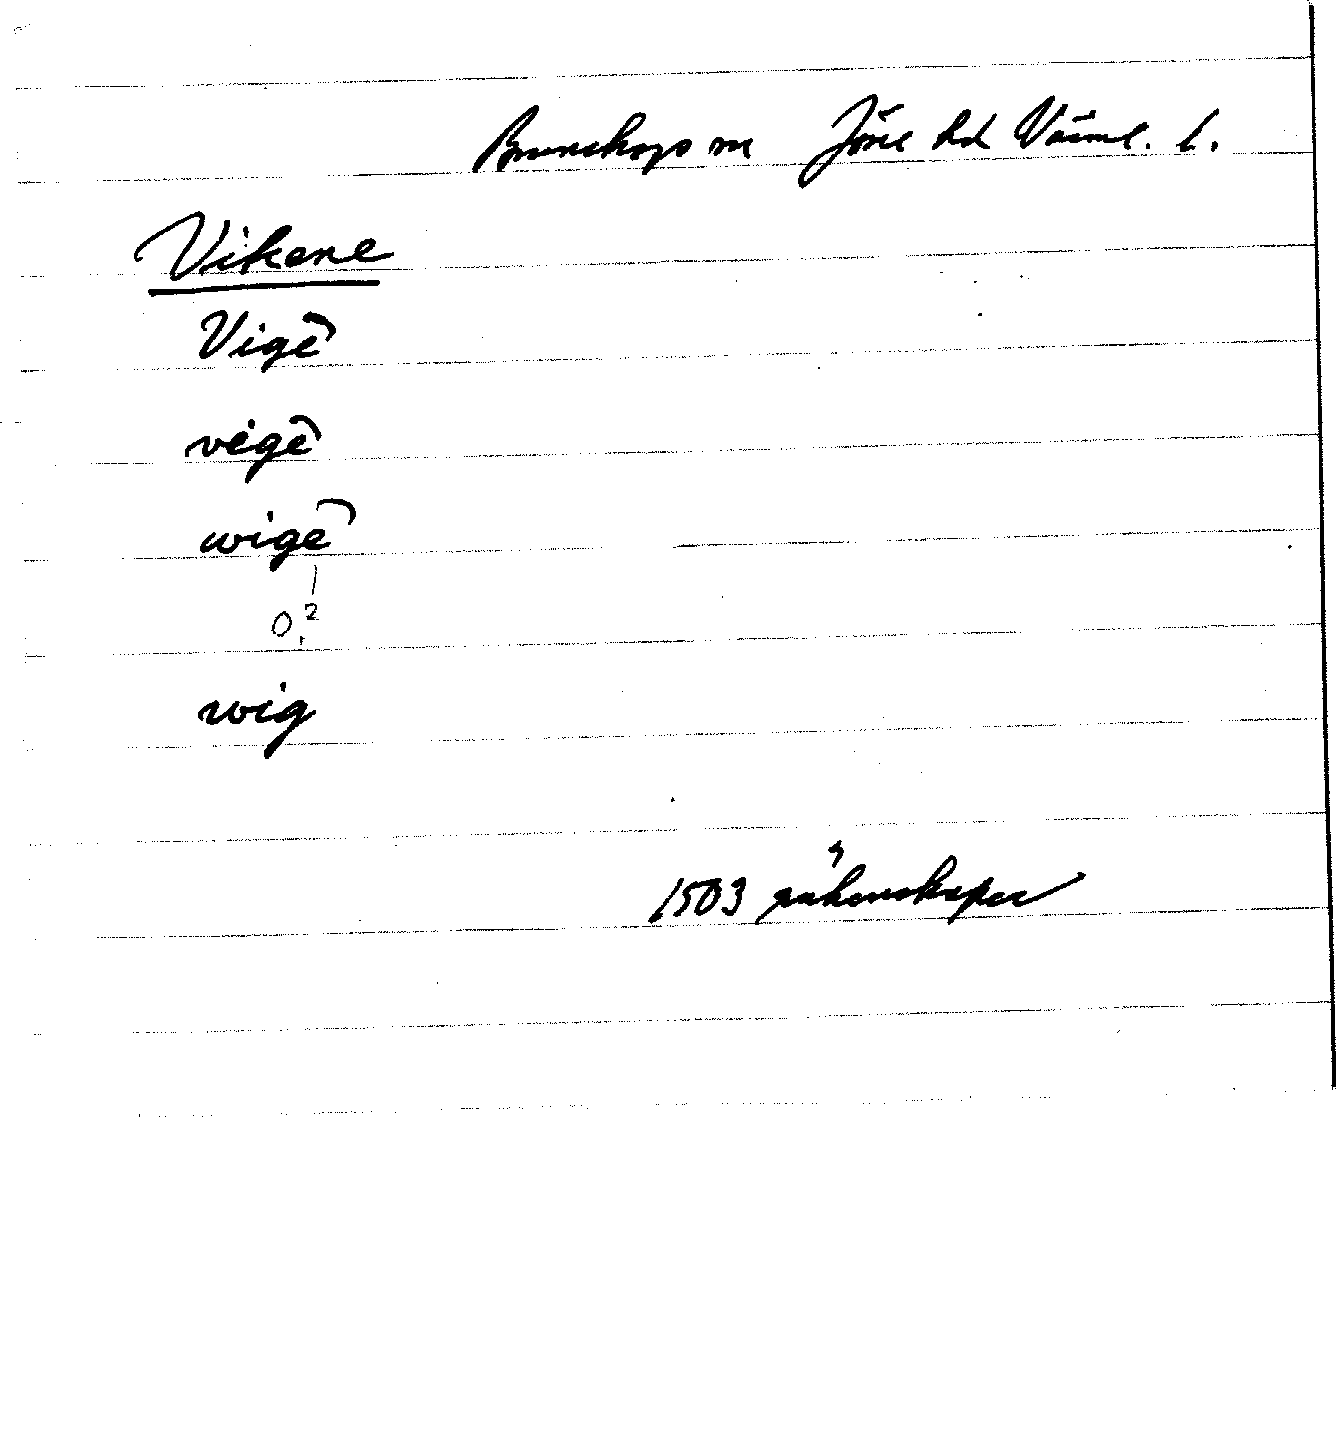 Brunskogs sn Jösse hd Värml. l.
Vikene
Vige
vige
wige
0,2
wig
1503 räkenskaper